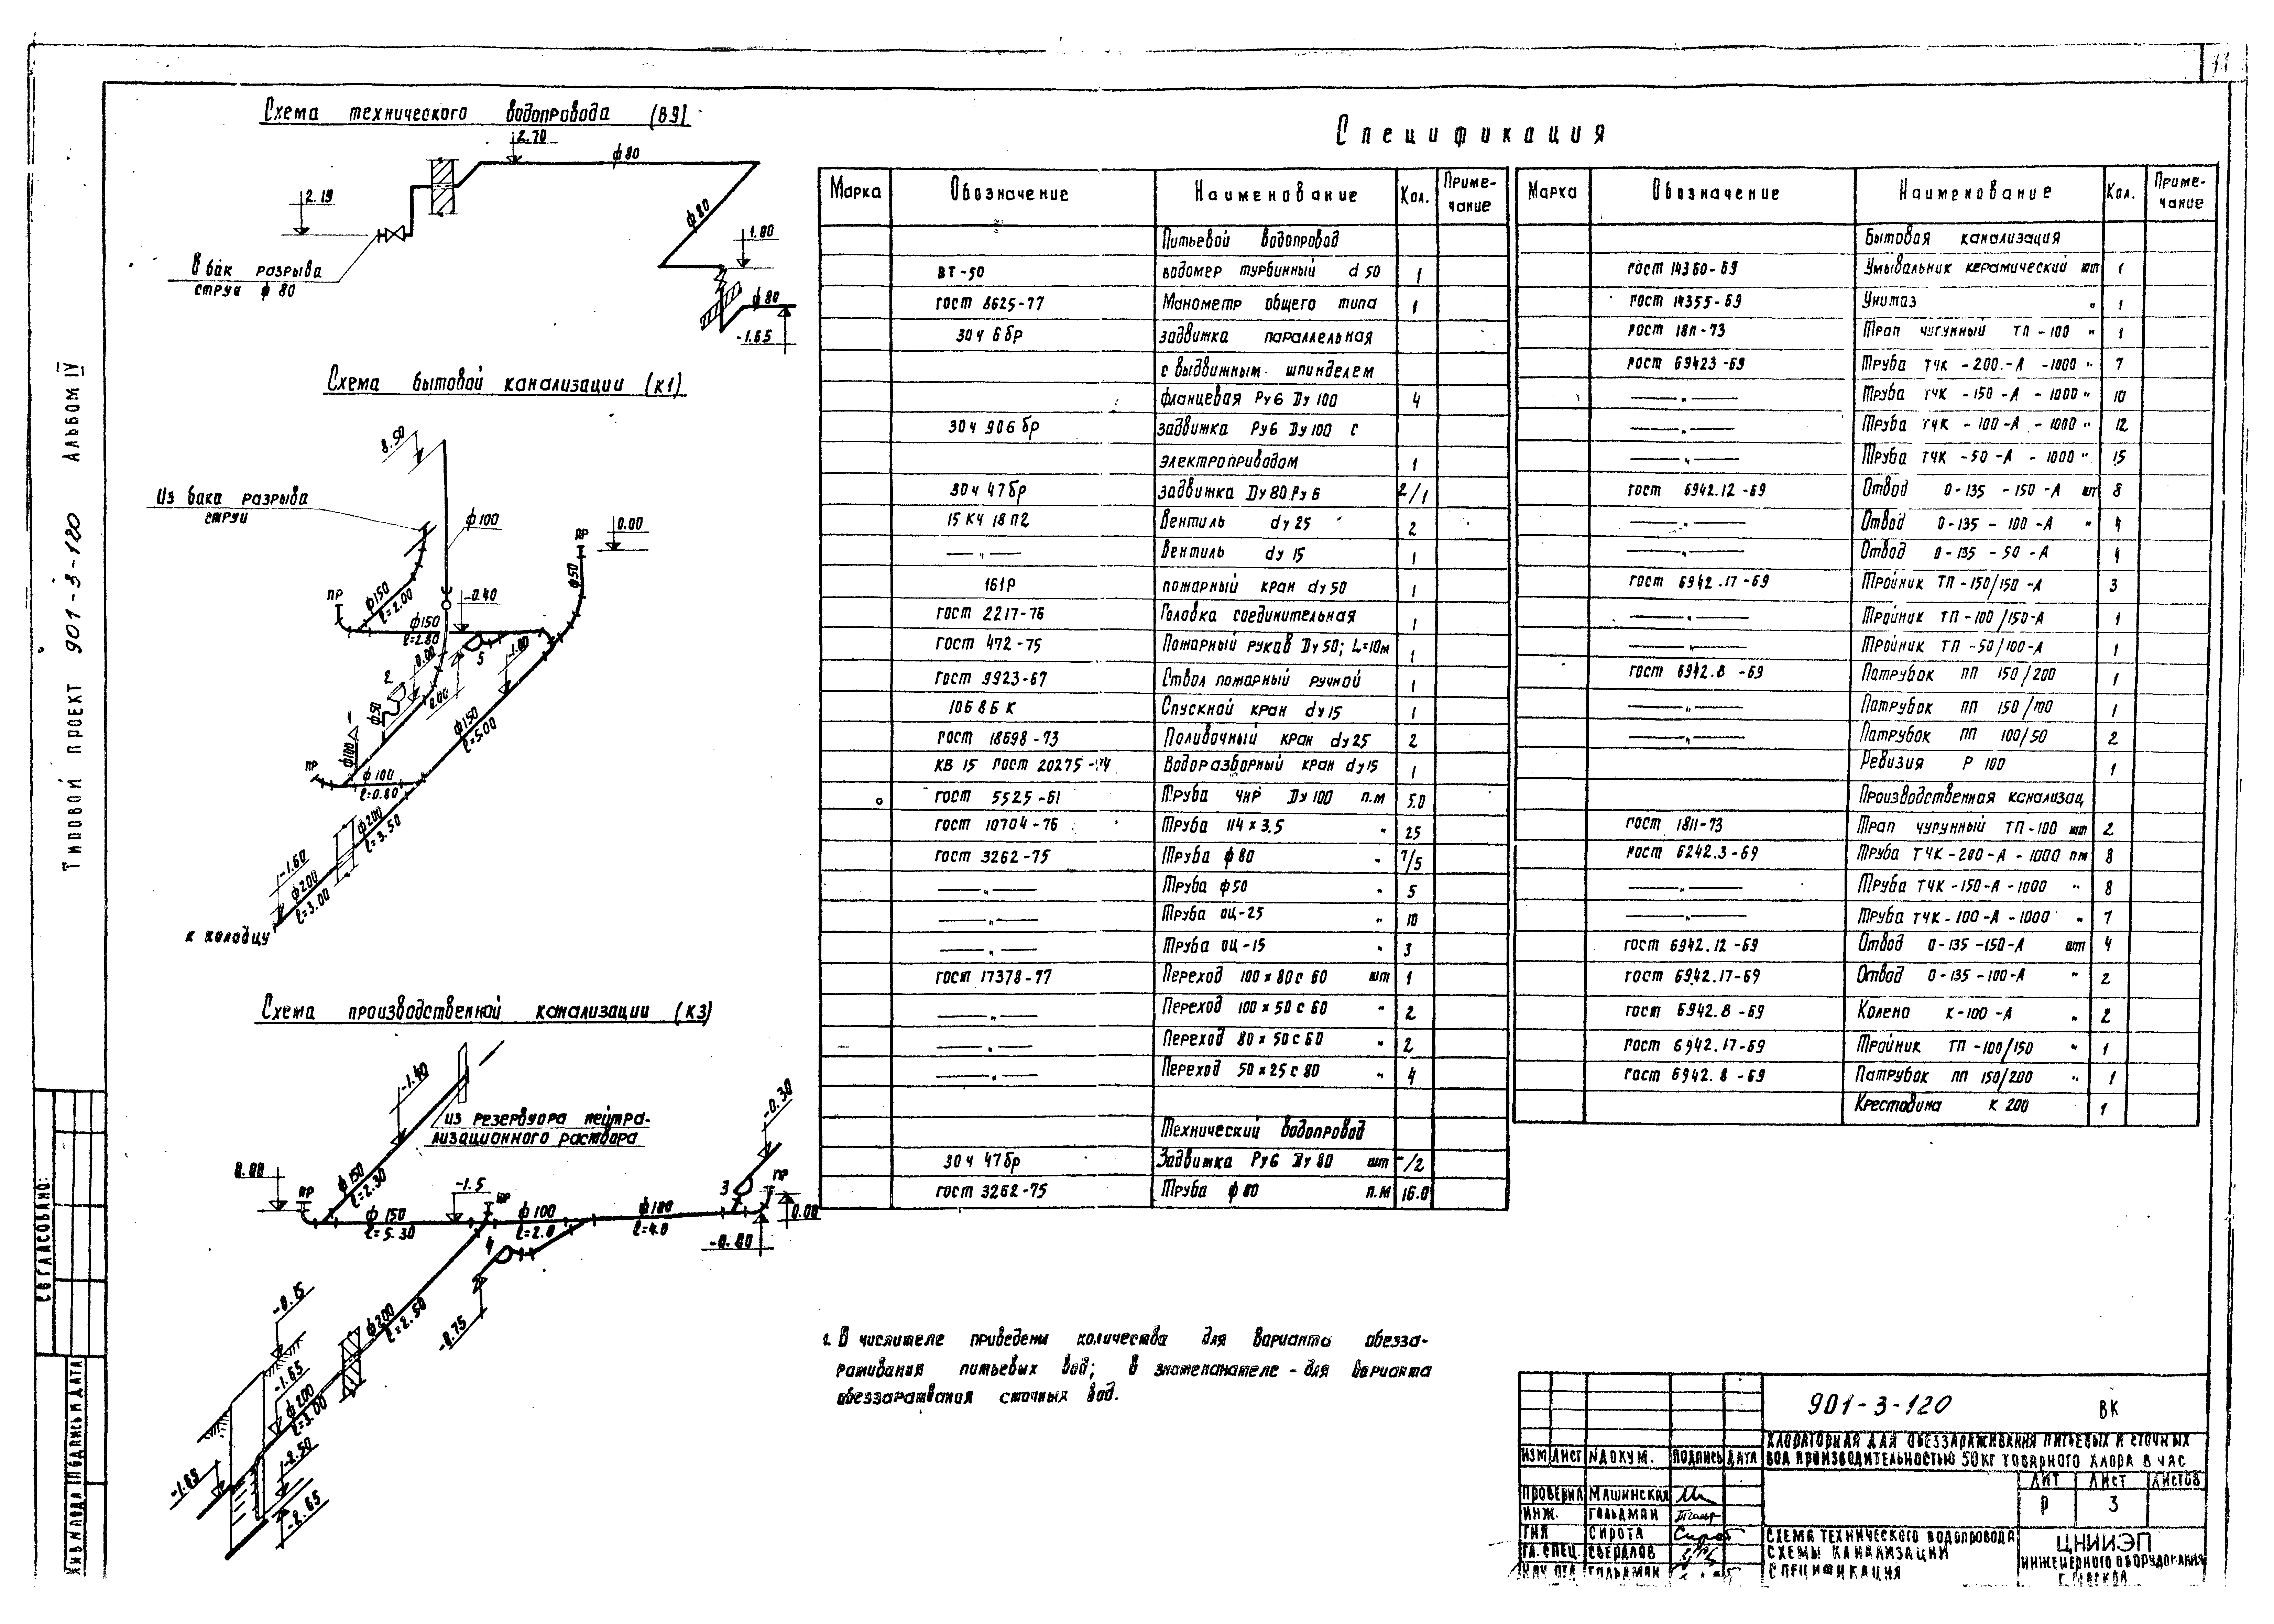 11
Схема технического водопровода (В9)
2.70
ф80
2.19
ф80
1.80
В бак разрыва
струи ф 80
ф80
-1.65
Схема бытовой канализации (К1)
8.50
Из бака разрыва
струи
ф100
ПР
0.00
ф50
ПР
ф150
ℓ=2.00
-0.40
ф150
ℓ=2.80
0.00
5
-1.00
2
0.00
ф50
1
ф100
ф150
ℓ=5.00
ПР
ф100
ℓ=0.80
ф200
ℓ=3.50
-1.60
ф200
ℓ=3.00
к колодцу
Схема производственной канализации (К3)
-1.40
из резервуара нейтра-
лизационного раствора
-0.30
0.00
ПР
ф150
ℓ=2.30
-1.5
ПР
3
ПР
ф150
ℓ=5.30
ф100
ℓ=2.0
ф100
ℓ=4.0
0.00
-0.80
4
-0.75
-0.15
ф200
ℓ=2.50
-1.65
ф200
ℓ=3.00
-1.85
-2.50
-2.65
Спецификация
Марка Обозначение Наименование Кол. Приме-
чание
Питьевой водопровод
ВТ-50 водомер турбинный d 50 1
гост 8625-77 Манометр общего типа 1
30ч 6бр задвижка параллельная
с выдвижным шпинделем
фланцевая Ру6 Ду 100 4
30ч 906бр задвижка Ру6 Ду100 с
электроприводом 1
30ч 47бр задвижка Ду80 Ру6 2/1
15 КЧ 18 П2 Вентиль dу 25 2
—„— Вентиль dу 15 1
161Р пожарный кран dу 50 1
гост 2217-76 Головка соединительная 1
гост 472-75 Пожарный рукав Ду50; L=10м 1
гост 9923-67 Ствол пожарный ручной 1
10Б 8Б К Спускной кран dу15 1
гост 18698-73 Поливочный кран dу25 2
КВ 15 гост 20275-74 Водоразборный кран dу15 1
гост 5525-61 Труба ЧНР Ду 100 п.м 5.0
гост 10704-76 Труба 114 х 3.5 „ 25
гост 3262-75 Труба ф80 „ 7/5
—„— Труба ф50 „ 5
—„— Труба оц-25 „ 10
—„— Труба оц-15 „ 3
гост 17378-77 Переход 100 х 80 с 60 шт 1
—„— Переход 100 х 50 с 60 „ 2
—„— Переход 80 х 50 с 60 „ 2
—„— Переход 50 х 25 с 80 „ 4
Технический водопровод
30ч 47бр Задвижка Ру6 Ду 80 шт -/2
гост 3262-75 Труба ф80 п.м 16.0
Марка Обозначение Наименование Кол. Приме-
чание
Бытовая канализация
гост 14360-69 Умывальник керамический шт 1
гост 14355-69 Унитаз „ 1
гост 1811-73 Трап чугунный ТП-100 „ 1
гост 69423-69 Труба ТЧК-200-А-1000 „ 7
—„— Труба ТЧК-150-А-1000 „ 10
—„— Труба ТЧК-100-А-1000 „ 12
—„— Труба ТЧК-50-А-1000 „ 15
гост 6942.12-69 Отвод О-135-150-А шт 8
—„— Отвод О-135-100-А „ 4
—„— Отвод О-135-50-А 4
гост 6942.17-69 Тройник ТП-150/150-А 3
—„— Тройник ТП-100/150-А 1
—„— Тройник ТП-50/100-А 1
гост 6942.8-69 Патрубок ПП 150/200 1
—„— Патрубок ПП 150/100 1
—„— Патрубок ПП 100/50 2
Ревизия Р 100 1
Производственная канализац
гост 1811-73 Трап чугунный ТП-100 шт 2
гост 6242.3-69 Труба ТЧК-200-А-1000 пм 8
—„— Труба ТЧК-150-А-1000 „ 8
—„— Труба ТЧК-100-А-1000 „ 7
гост 6942.12-69 Отвод О-135-150-А шт 4
гост 6942.17-69 Отвод О-135-100-А „ 2
гост 6942.8-69 Колено К-100-А „ 2
гост 6942.17-69 Тройник ТП-100/150 „ 1
гост 6942.8-69 Патрубок ПП 150/200 „ 1
Крестовина К 200 1
1. В числителе приведены количества для варианта обезза-
раживания питьевых вод; в знаменателе - для варианта
обеззараживания сточных вод.
Типовой проект 901-3-120 Альбом IV
СОГЛАСОВАНО:
ИНВ № ПОДЛ. ПОДПИСЬ И ДАТА
901-3-120 ВК
ХЛОРАТОРНАЯ ДЛЯ ОБЕЗЗАРАЖИВАНИЯ ПИТЬЕВЫХ И СТОЧНЫХ
ВОД ПРОИЗВОДИТЕЛЬНОСТЬЮ 50КГ ТОВАРНОГО ХЛОРА В ЧАС
ИЗМ ЛИСТ N ДОКУМ. ПОДПИСЬ ДАТА
ЛИТ ЛИСТ ЛИСТОВ
Р 3
ПРОВЕРИЛ МАШИНСКАЯ
ИНЖ. ГОЛЬДМАН
ГИП СИРОТА
ГЛ. СПЕЦ. СВЕРДЛОВ
НАЧ ОТД ГОЛЬДМАН
СХЕМА ТЕХНИЧЕСКОГО ВОДОПРОВОДА
СХЕМЫ КАНАЛИЗАЦИИ
СПЕЦИФИКАЦИЯ
ЦНИИЭП
ИНЖЕНЕРНОГО ОБОРУДОВАНИЯ
Г. МОСКВА